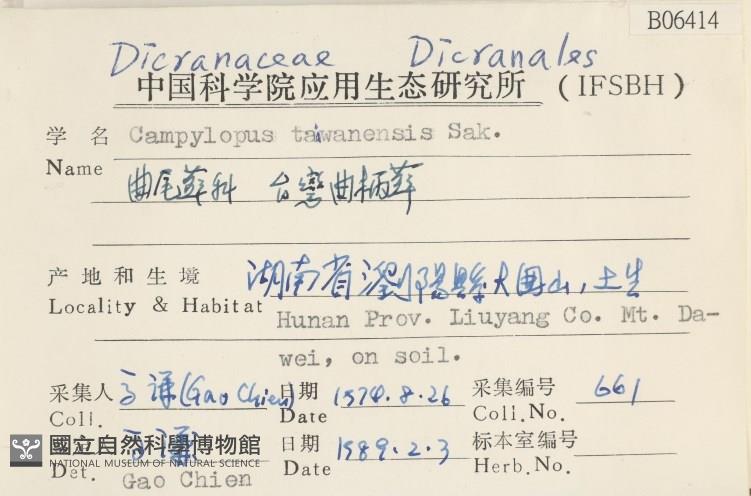 B06414
Dicranaceae Dicranales
中国科学院应用生态研究所 (IFSBH)
学名 Campylopus taiwanensis Sak.
Name
曲尾蘚科 台灣曲柄蘚
产地和生境 湖南省瀏陽縣大圍山，土生
Locality & Habitat Hunan Prov. Liuyang Co. Mt. Da-
wei, on soil.
采集人 高谦(Gao Chien) 日期 1974.8.26 采集编号 661
Coll. Date Coll.No.
高谦 日期 1989.2.3 标本室编号
Det. Gao Chien Date Herb.No.
國立自然科學博物館
NATIONAL MUSEUM OF NATURAL SCIENCE